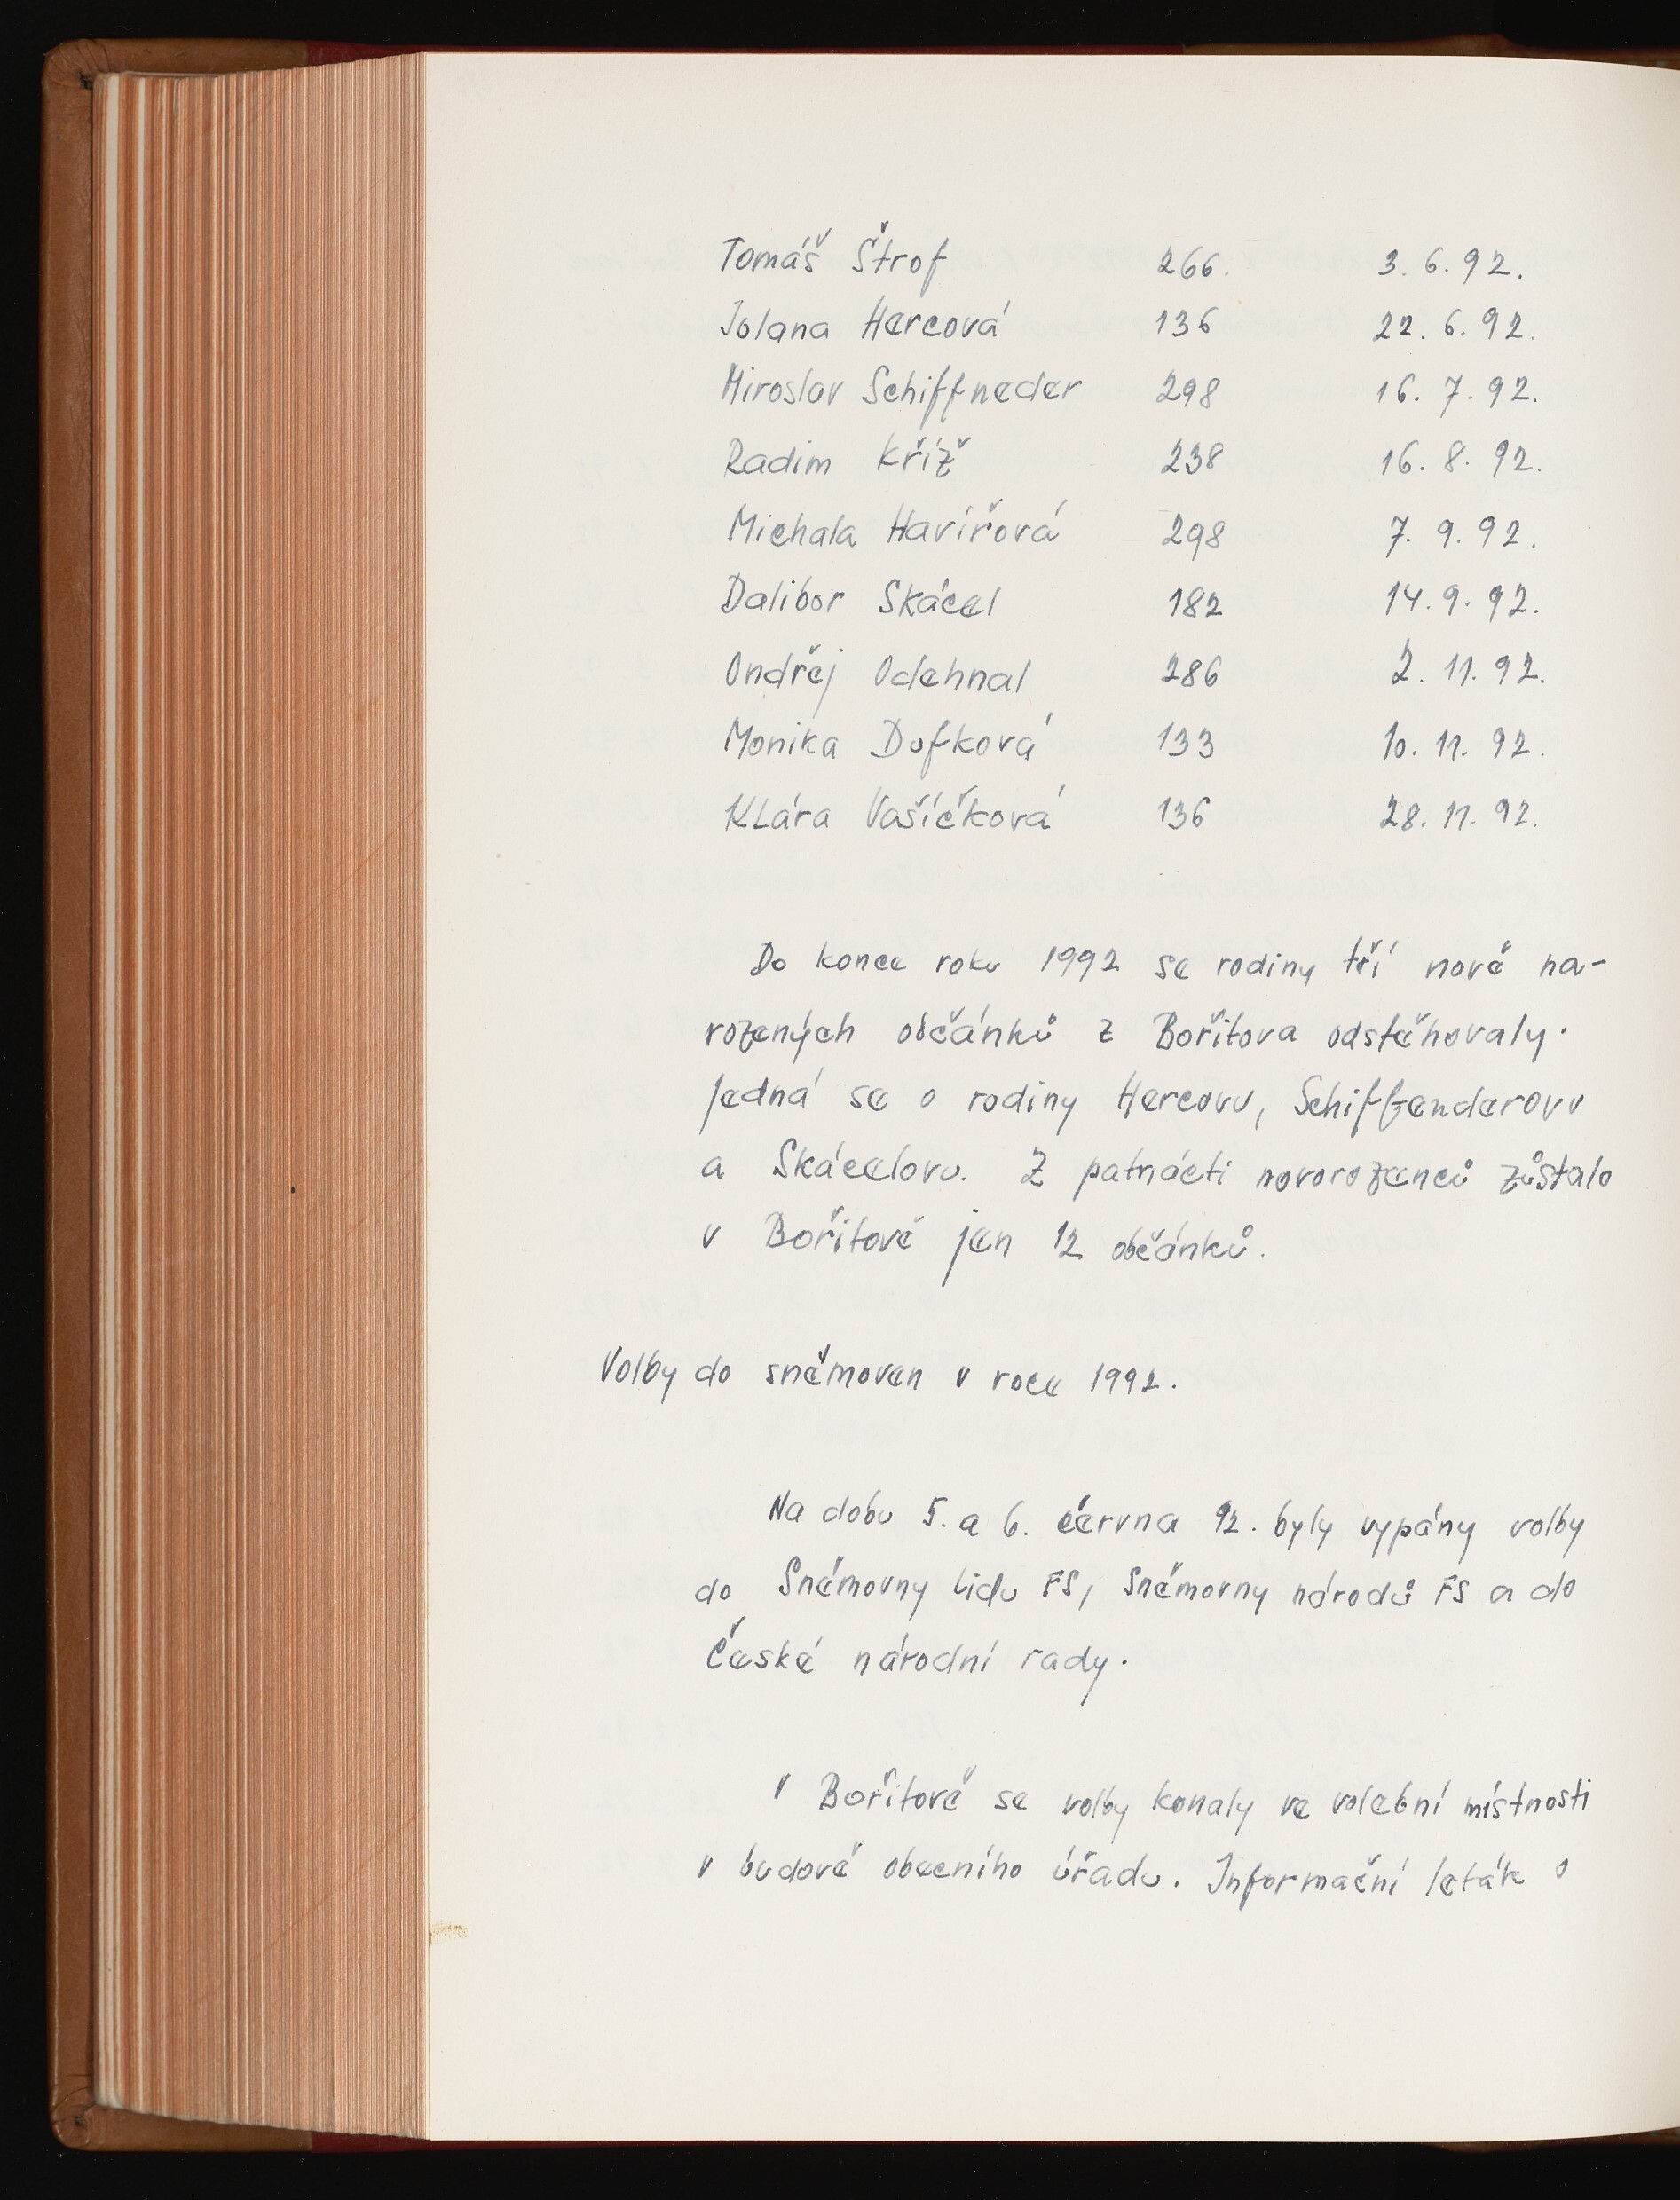 Tomáš Štrof 266. 3. 6. 92.
Jolana Hercová 136 22. 6. 92.
Miroslav Schiffneder 298 16. 7. 92.
Radim Kříž 238 16. 8. 92.
Michala Havířová 298 7. 9. 92.
Dalibor Skácel 182 14. 9. 92.
Ondřej Odehnal 286 2. 11. 92.
Monika Dufková 133 10. 11. 92.
Klára Vašíčková 136 28. 11. 92.
Do konce roku 1992 se rodiny tří nově na-
rozených občánků z Bořitova odstěhovaly.
Jedná se o rodiny Hercovu, Schiffenderovu
a Skácelovu. Z patnácti novorozenců zůstalo
v Bořitově jen 12 občánků.
Volby do sněmoven v roce 1992.
Na dobu 5. a 6. června 92. byly vypány volby
do Sněmovny lidu FS, Sněmovny národů FS a do
České národní rady.
V Bořitově se volby konaly ve volební místnosti
v budově obecního úřadu. Informační leták o